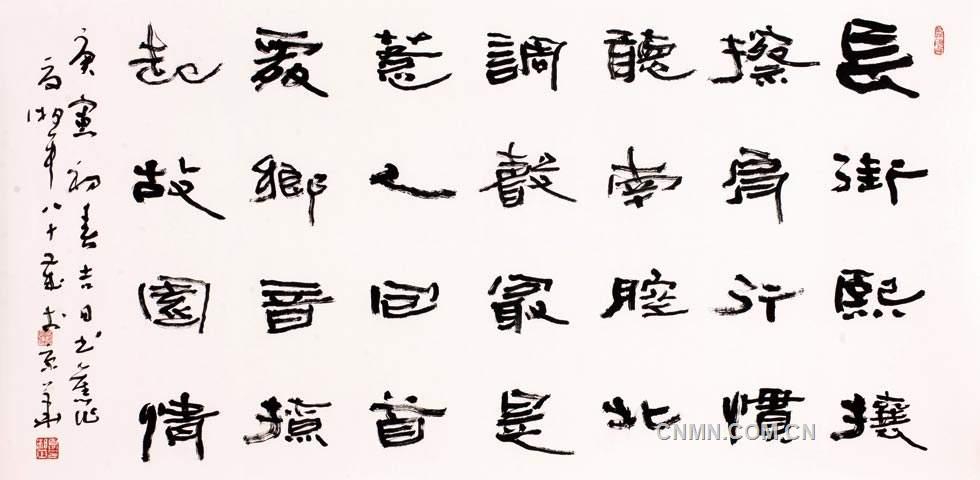 長街熙攘
擦肩行慣
聽南腔北
調聲最是
惹人回首
處鄉音撩
起故園情
庚寅初春吉日书舊作
高湖年八十五歲于京華
CNMN.COM.CN